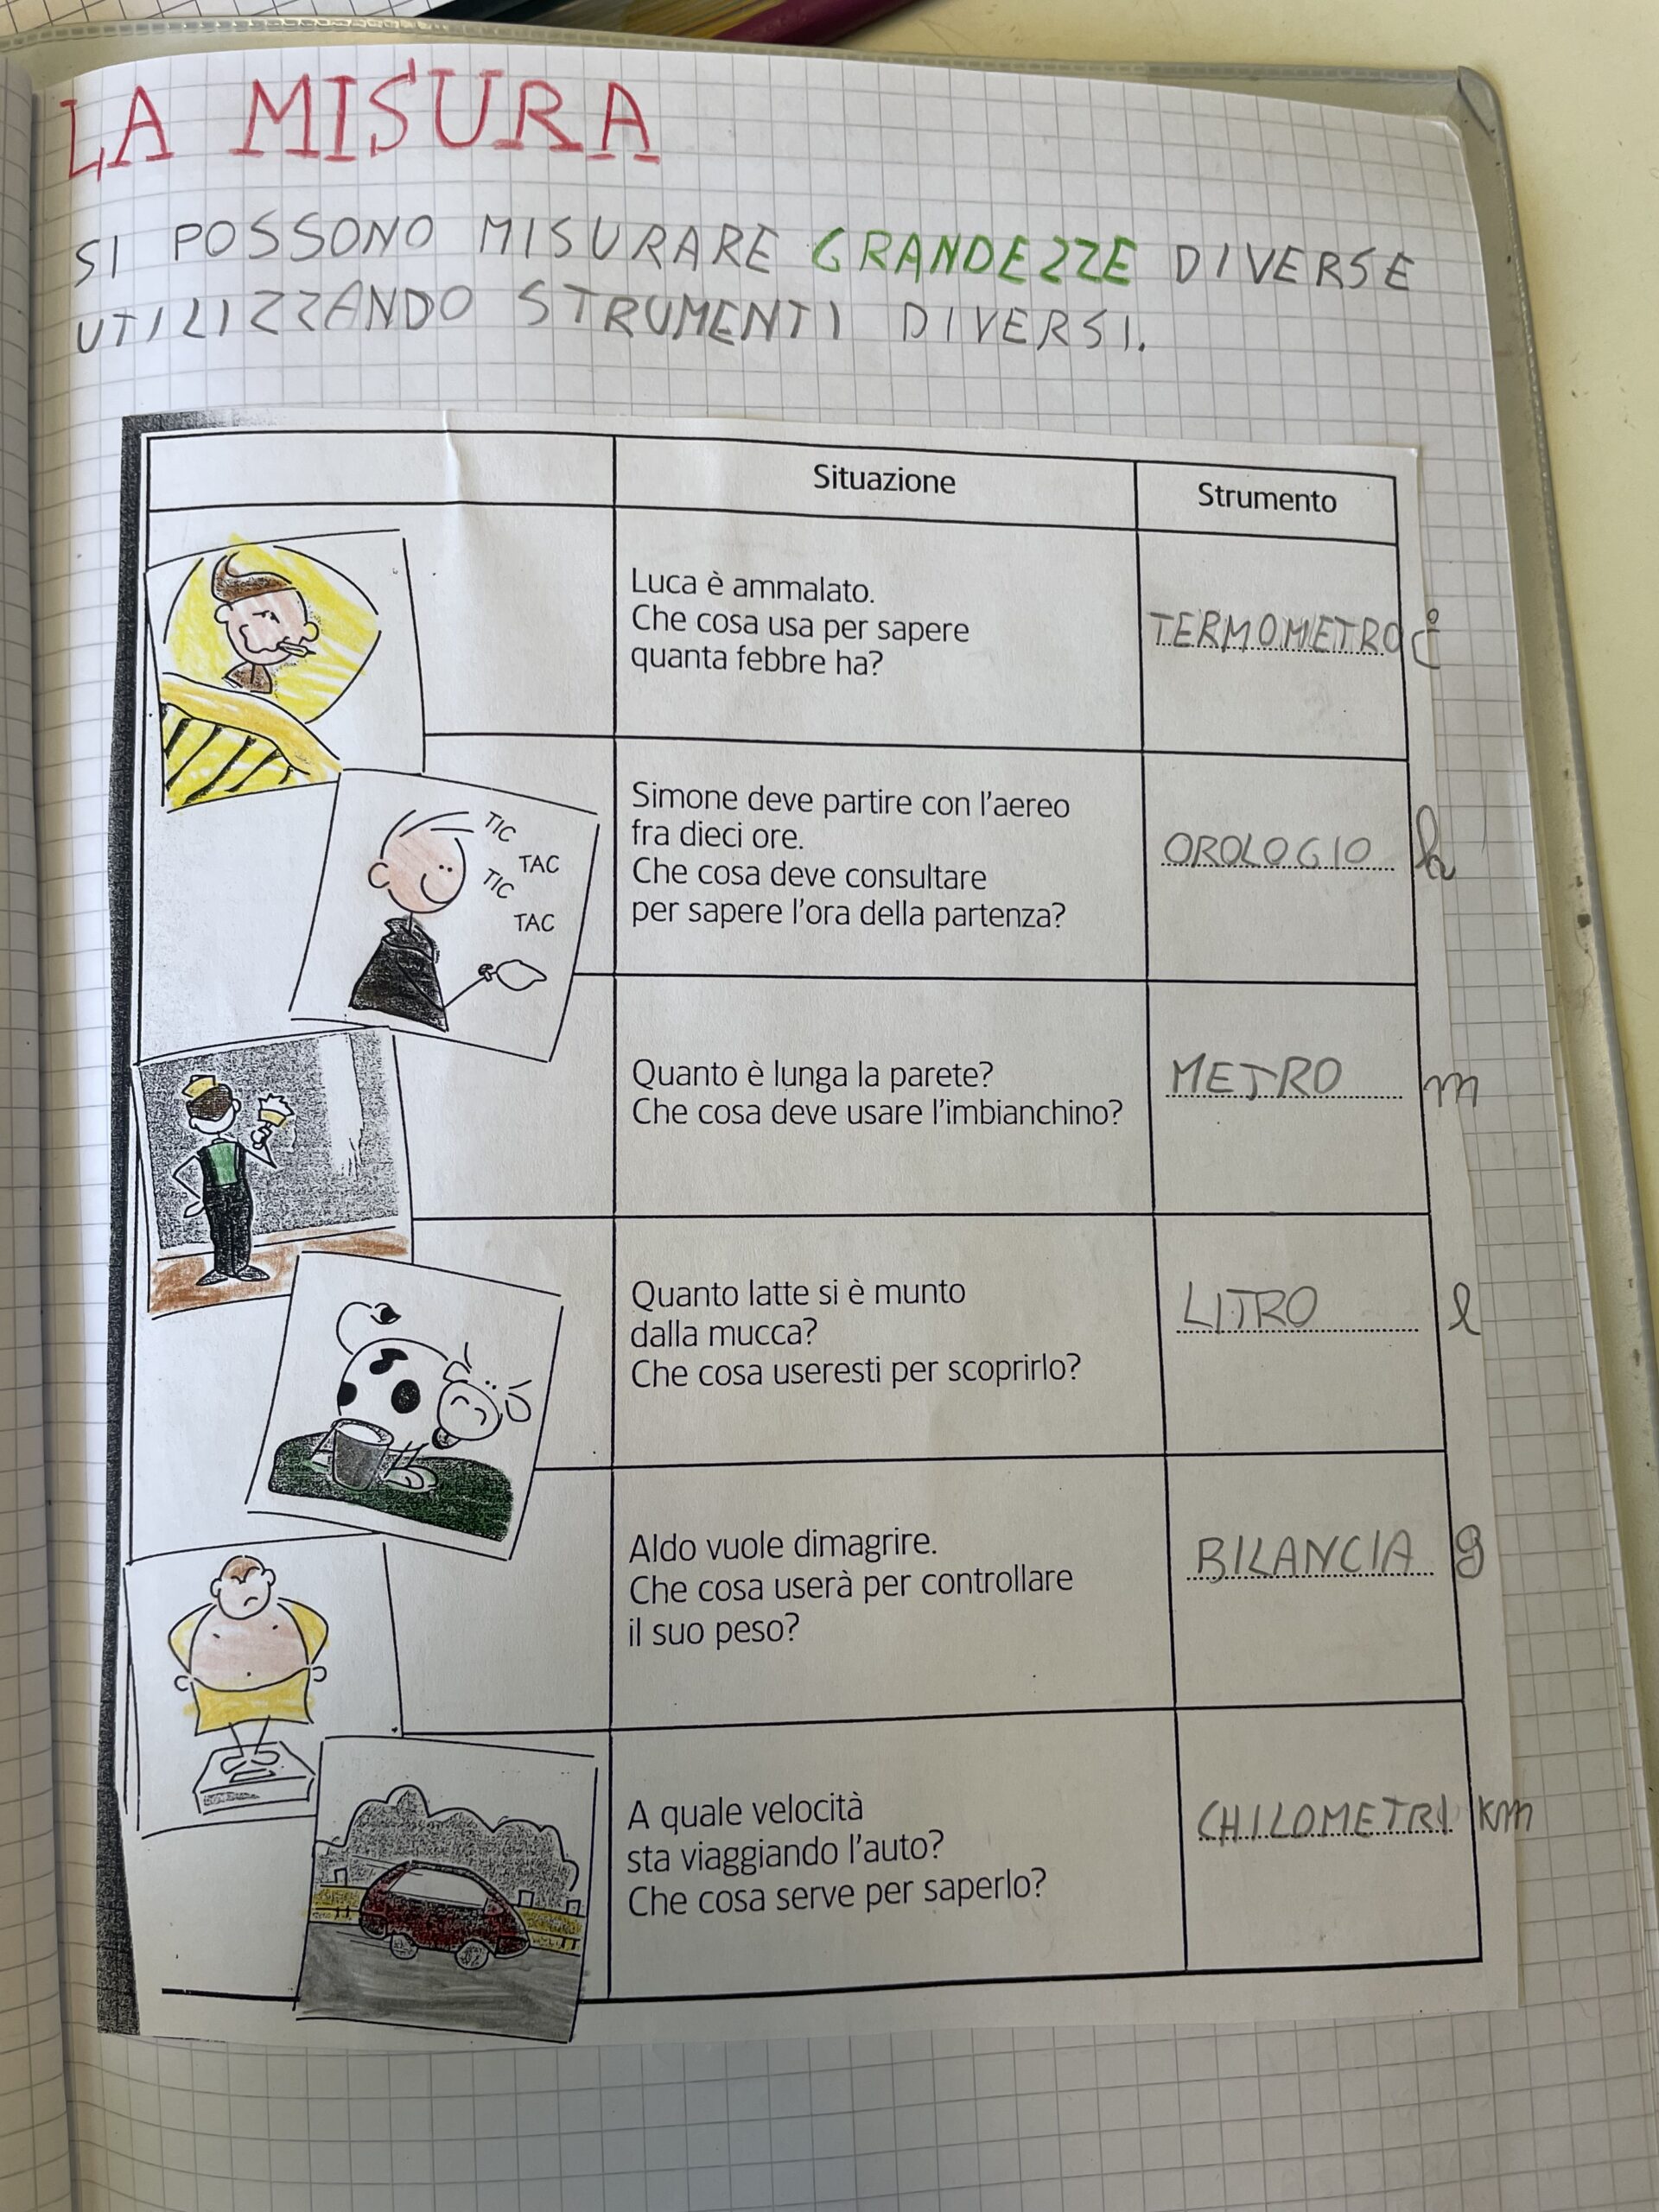 LA MISURA
SI POSSONO MISURARE GRANDEZZE DIVERSE
UTILIZZANDO STRUMENTI DIVERSI.
Situazione
Strumento
Luca è ammalato.
Che cosa usa per sapere
quanta febbre ha?
TERMOMETRO C°
TIC
TAC
TIC
TAC
Simone deve partire con l'aereo
fra dieci ore.
Che cosa deve consultare
per sapere l'ora della partenza?
OROLOGIO h
Quanto è lunga la parete?
Che cosa deve usare l'imbianchino?
METRO m
Quanto latte si è munto
dalla mucca?
Che cosa useresti per scoprirlo?
LITRO l
Aldo vuole dimagrire.
Che cosa userà per controllare
il suo peso?
BILANCIA g
A quale velocità
sta viaggiando l'auto?
Che cosa serve per saperlo?
CHILOMETRI km